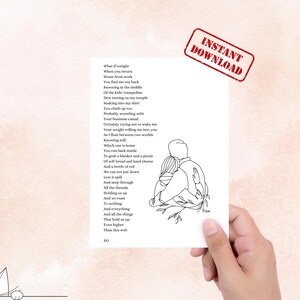 INSTANT
DOWNLOAD
What if tonight
When you return
Home from work
You find me out back
Snoozing in the middle
Of the kids' trampoline
Dew oozing on my temple
Soaking into my shirt
You climb up too
Probably wrestling with
Your business casual
Certainly trying not to wake me
Your weight rolling me into you
As I flow between two worlds
Knowing still
Which one is home
You run back inside
To grab a blanket and a picnic
Of soft bread and hard cheese
And a bottle of red
We can not put down
Lest it spill
And seep through
All the threads
Holding us up
And we toast
To nothing
And everything
And all the things
That hold us up
Even higher
Than this web
XO